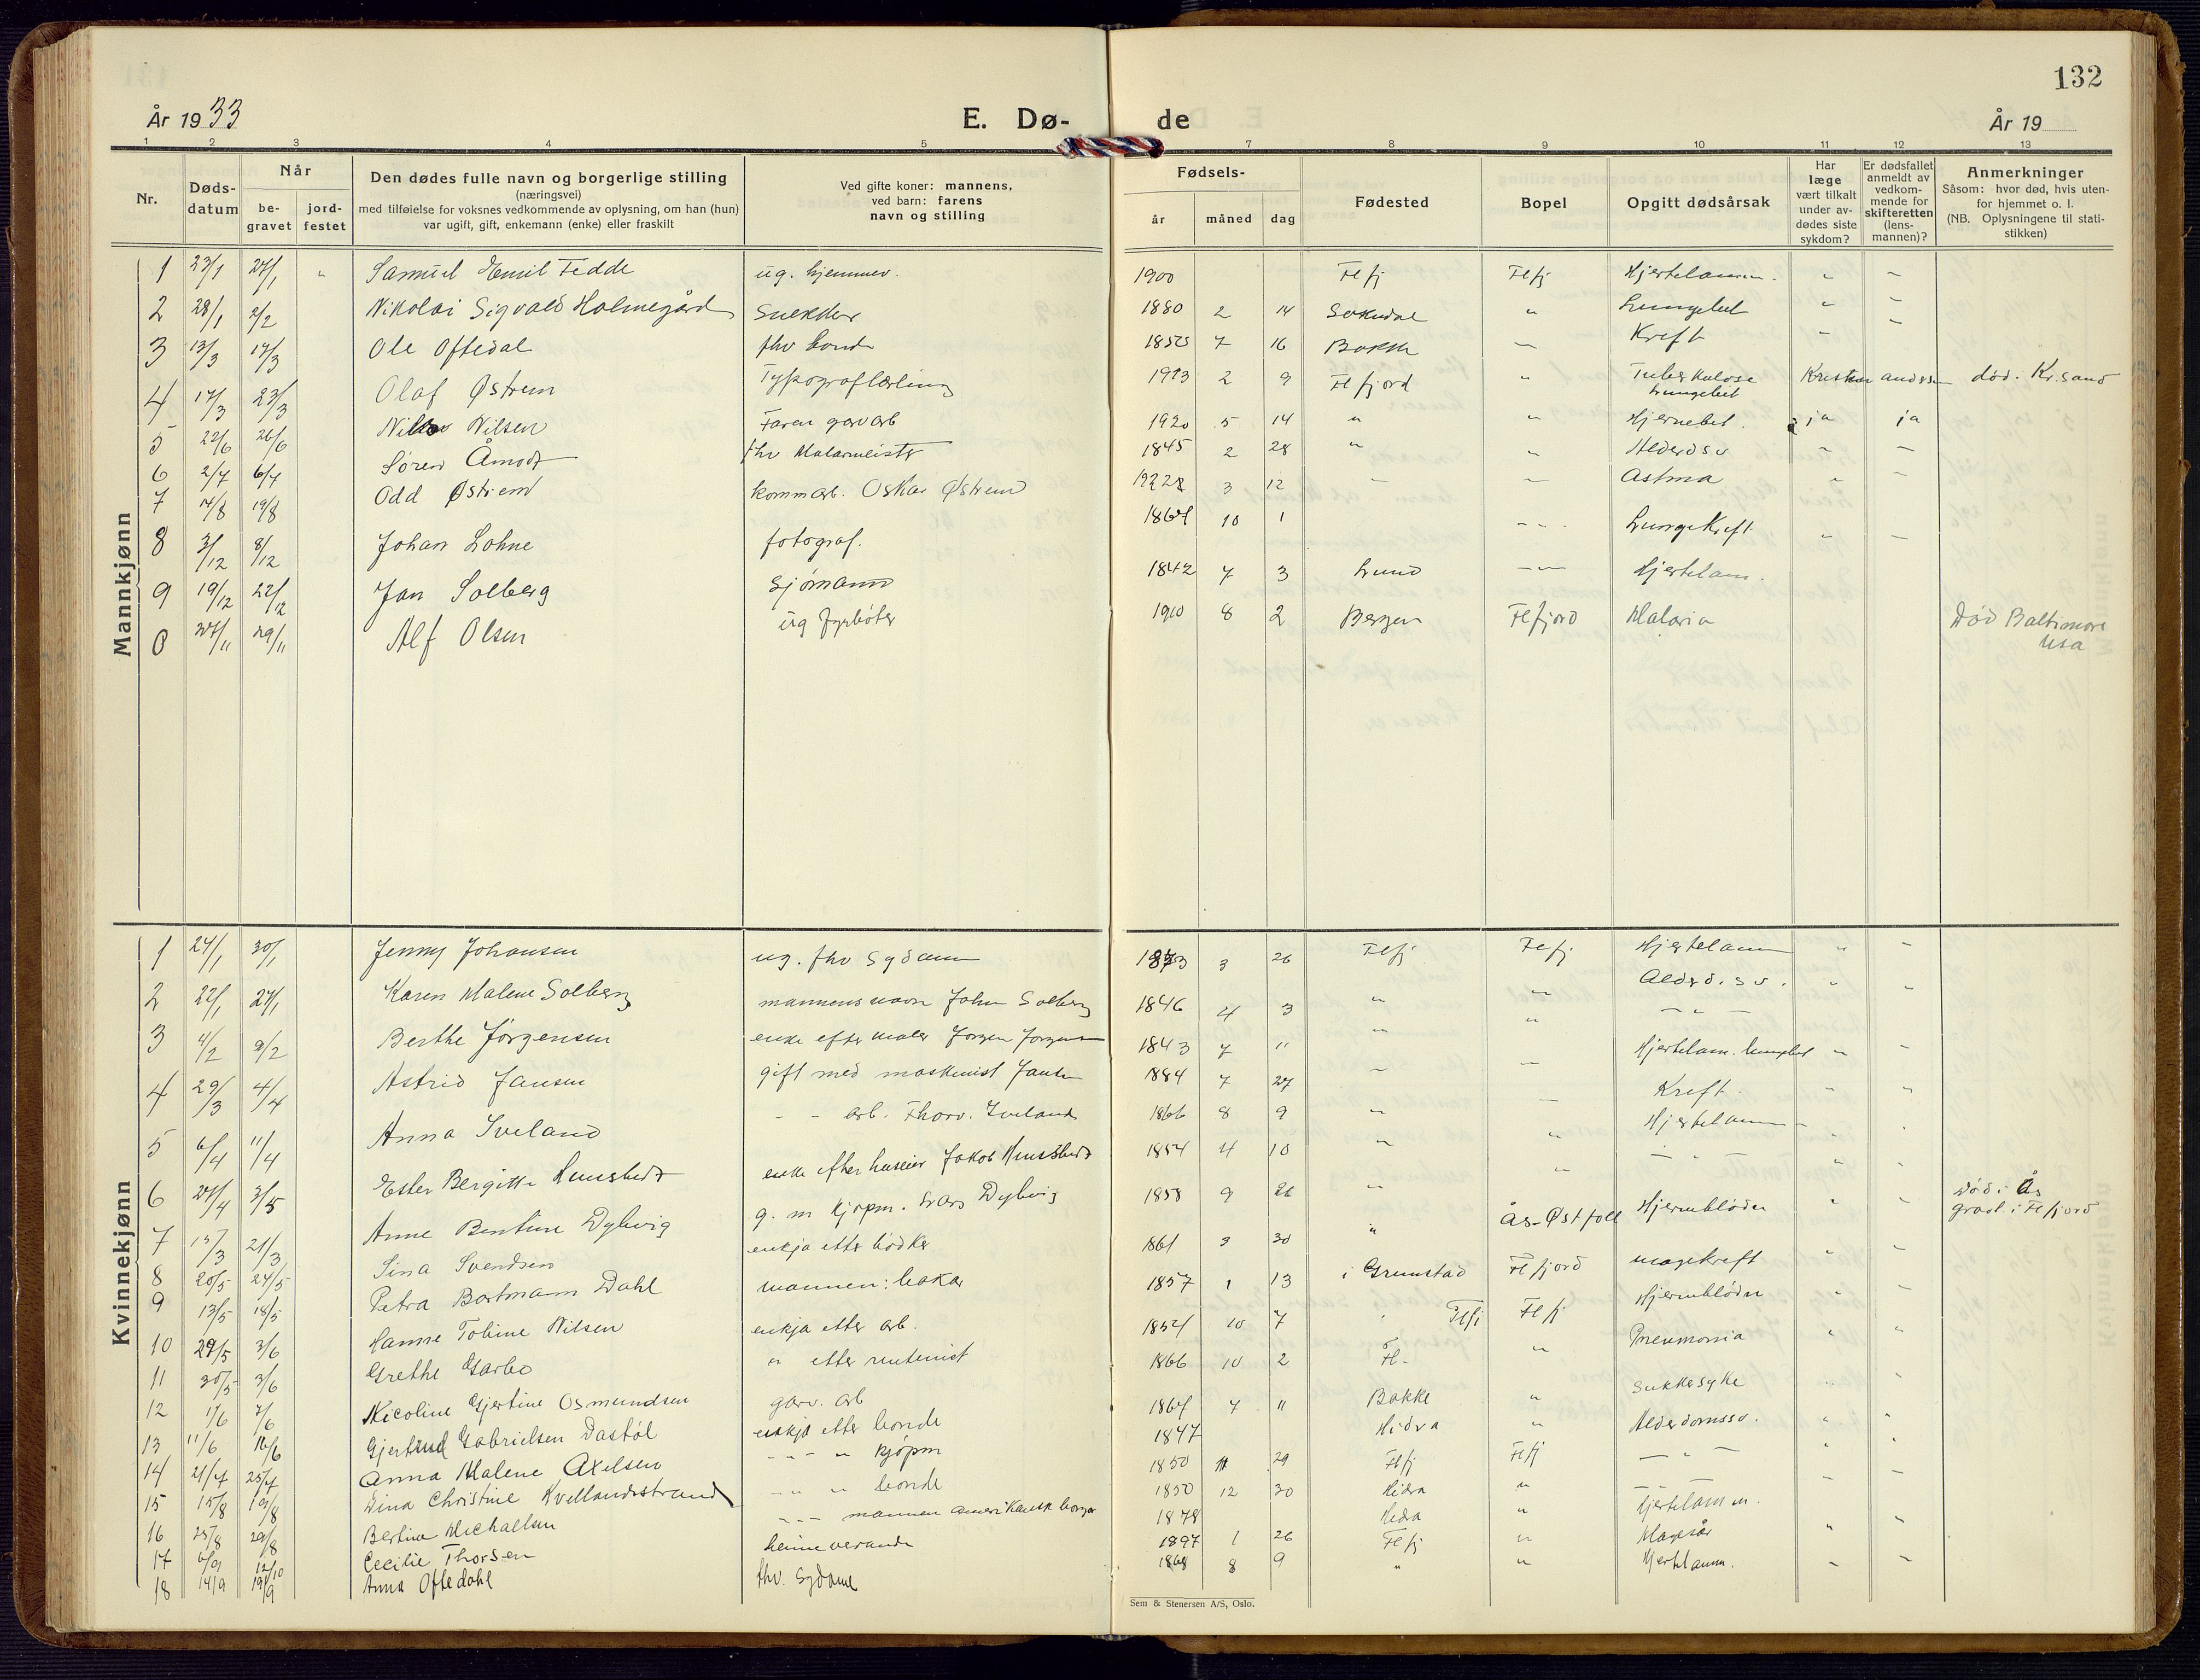 132
År 1933 E. Dø- de År 19
1 2 3 4 5 7 8 9 10 11 12 13
Nr.
Døds-datum
Når
be-gravet
jord-festet
Den dødes fulle navn og borgerlige stilling
(næringsvei)
med tilføielse for voksnes vedkommende av oplysning, om han (hun)
var ugift, gift, enkemann (enke) eller fraskilt
Ved gifte koner: mannens,
ved barn: farens
navn og stilling
Fødsels-
år måned dag
Fødested
Bopel
Opgitt dødsårsak
Har
læge
vært tilkalt
under av-
dødes siste
sykdom?
Er dødsfallet
anmeldt av
vedkom-
mende for
skifteretten
(lens-
mannen)?
Anmerkninger
Såsom: hvor død, hvis uten-
for hjemmet o. l.
(NB. Oplysningene til stati-
stikken)
Mannkjønn
1 23/1 27/1 " Samuel Emil Fedde ug. hjemmev. 1900 Flfj Flfj Hjertelamm. " –
2 28/1 2/2 Nikolai Sigvald Holmegård Snekker 1880 2 14 Sokndal " Lungebet " –
3 13/3 17/3 Ole Oftedal fhv bonde 7 16 Bakke — Kreft – –
4 17/3 23/3 Olaf Østrem Typograflærling 1913 2 9 Fl fjord " Tuberkulose Lungebet Kristiansand død. Kr.sand
5 22/6 26/6 Nilsen Faren garvarb 1920 5 14 " " Hjernebet. ja ja
6 2/7 6/7 Søren Åmodt fhv Malermester 1845 2 28 " " Alderdsv " –
7 14/8 19/8 Odd Østrem kommarb. Oskar Østrem 3 12 – – Astma "
8 3/12 8/12 Johan Lohne fotograf. 10 1 – – – Lungekreft " –
9 19/12 22/12 Jan Solberg Sjømann 1842 7 3 Lund – – Hjertelam.
0 27/11 29/11 Alf Olsen ug fyrbøter 1910 8 2 Bergen Flfjord Malaria Død Baltimore Usa
Kvinnekjønn
1 24/1 30/1 Jenny Johansen ug. fhv Sydame 3 26 Flfj Flfj Hjertelamm " –
2 22/1 27/1 Karen Malene Solberg mannens navn John Solberg 1846 4 3 " " Alderd. sv. " "
3 4/2 9/2 Berthe Jørgensen enke efter maler Jørgen Jørgensen 1843 7 11 " " – " –
4 29/3 4/4 Astrid Jansen gift med maskinist Jansen 1884 7 27 – – Hjertelam. lungebet " –
5 6/4 11/4 Anna Iveland - - arb. Thorv. Iveland 1866 8 9 " — Kreft. " "
6 27/4 3/5 Ester Bergitte enke efter huseier Jakob 1854 4 10 " " Hjertelamm " "
7 17/3 21/3 Anne Bentine Dybvig g. m kjøpm. Lars Dybvig 9 26 " Ås-Østfold Hjerneblødn " – Død i Ås gravl. i Flfjord
8 20/5 24/5 Sina Svendsen enkja etter bødker 1861 3 30 " Flfjord magekreft " –
9 13/5 18/5 Petra Bortmann Dahl mannen: baker 1857 1 13 i Grimstad Hjerneblødn " –
10 29/5 3/6 Hanne Tobine Nilsen enkja etter arb. 10 7 Flfj Flfj Pneumonia " "
11 30/5 3/6 Grethe Garbo " etter rentenist 1866 10 2 Fl- " Sukkersyke
12 1/6 7/6 Nicoline Gjertine Osmundsen garv. arb 7 11 Bakke " Alderdomssv. " "
13 11/6 16/6 Gjertrud Gabrielsen Dastøl enkja etter bonde 1847 Hidra " – " – " "
14 21/7 25/7 Anna Malene Axelsen – – " kjøpm 1850 11 29 Flfj Flfj
15 15/8 19/8 Dina Christine Kvellandsstrand – – " bonde 1850 12 30 Hidra " Hjertelamm.
16 25/8 29/8 Bertine Michalsen – – – mannen amerikansk borger 1878 Hidra " Magesår " "
17 12/10 Cecilie Thorsen heimeverande 1897 1 26 Flfj " Hjertelamm.
18 14/9 19/9 Anna Oftedahl fhv. Sydame 1868 8 9 " " – –
Sem & Stenersen A/S, Oslo.